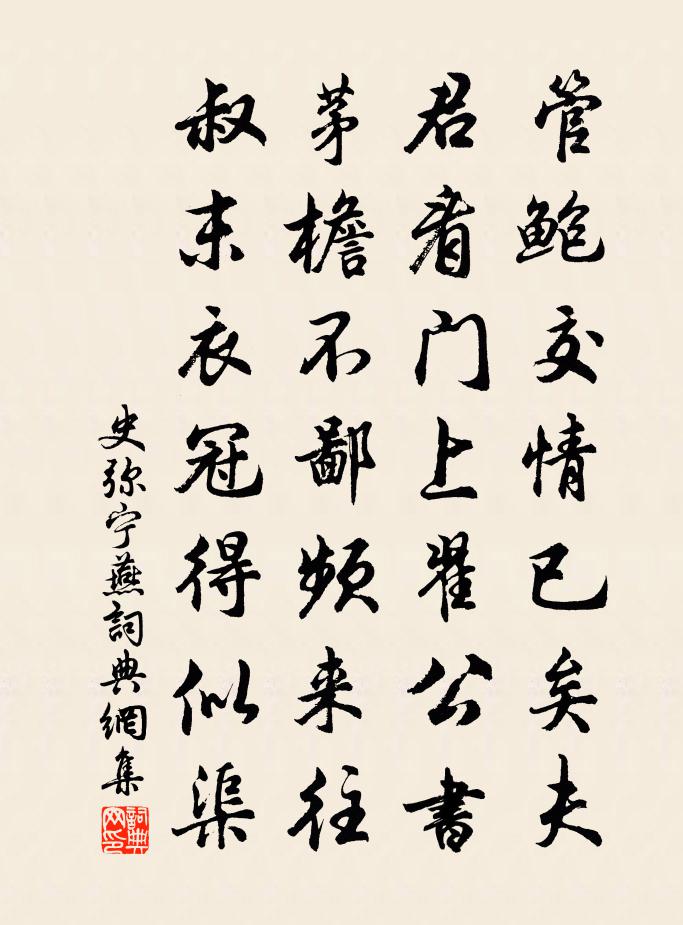 管鲍交情已矣夫
君看门上翟公書
茅檐不鄙频来往
叔末衣冠得似渠
史弥宁燕詞典網集
詞典
网印